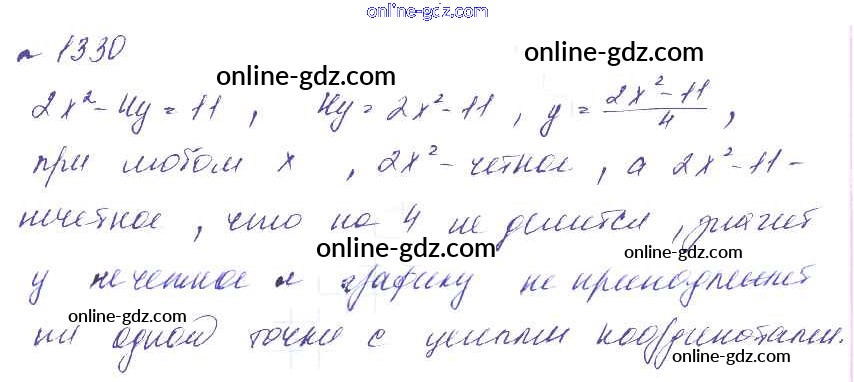 online-gdz.com
№ 1330
online-gdz.com
online-gdz.com
2x² - 4y = 11, 4y = 2x² - 11, y = (2x² - 11)/4,
при любом x, 2x² - четное, а 2x² - 11 -
online-gdz.com
нечетное, что на 4 не делится, значит
online-gdz.com
online-gdz.com
у нечетное и графику не принадлежит
online-gdz.com
ни одной точки с целыми координатами.
online-gdz.com
online-gdz.com